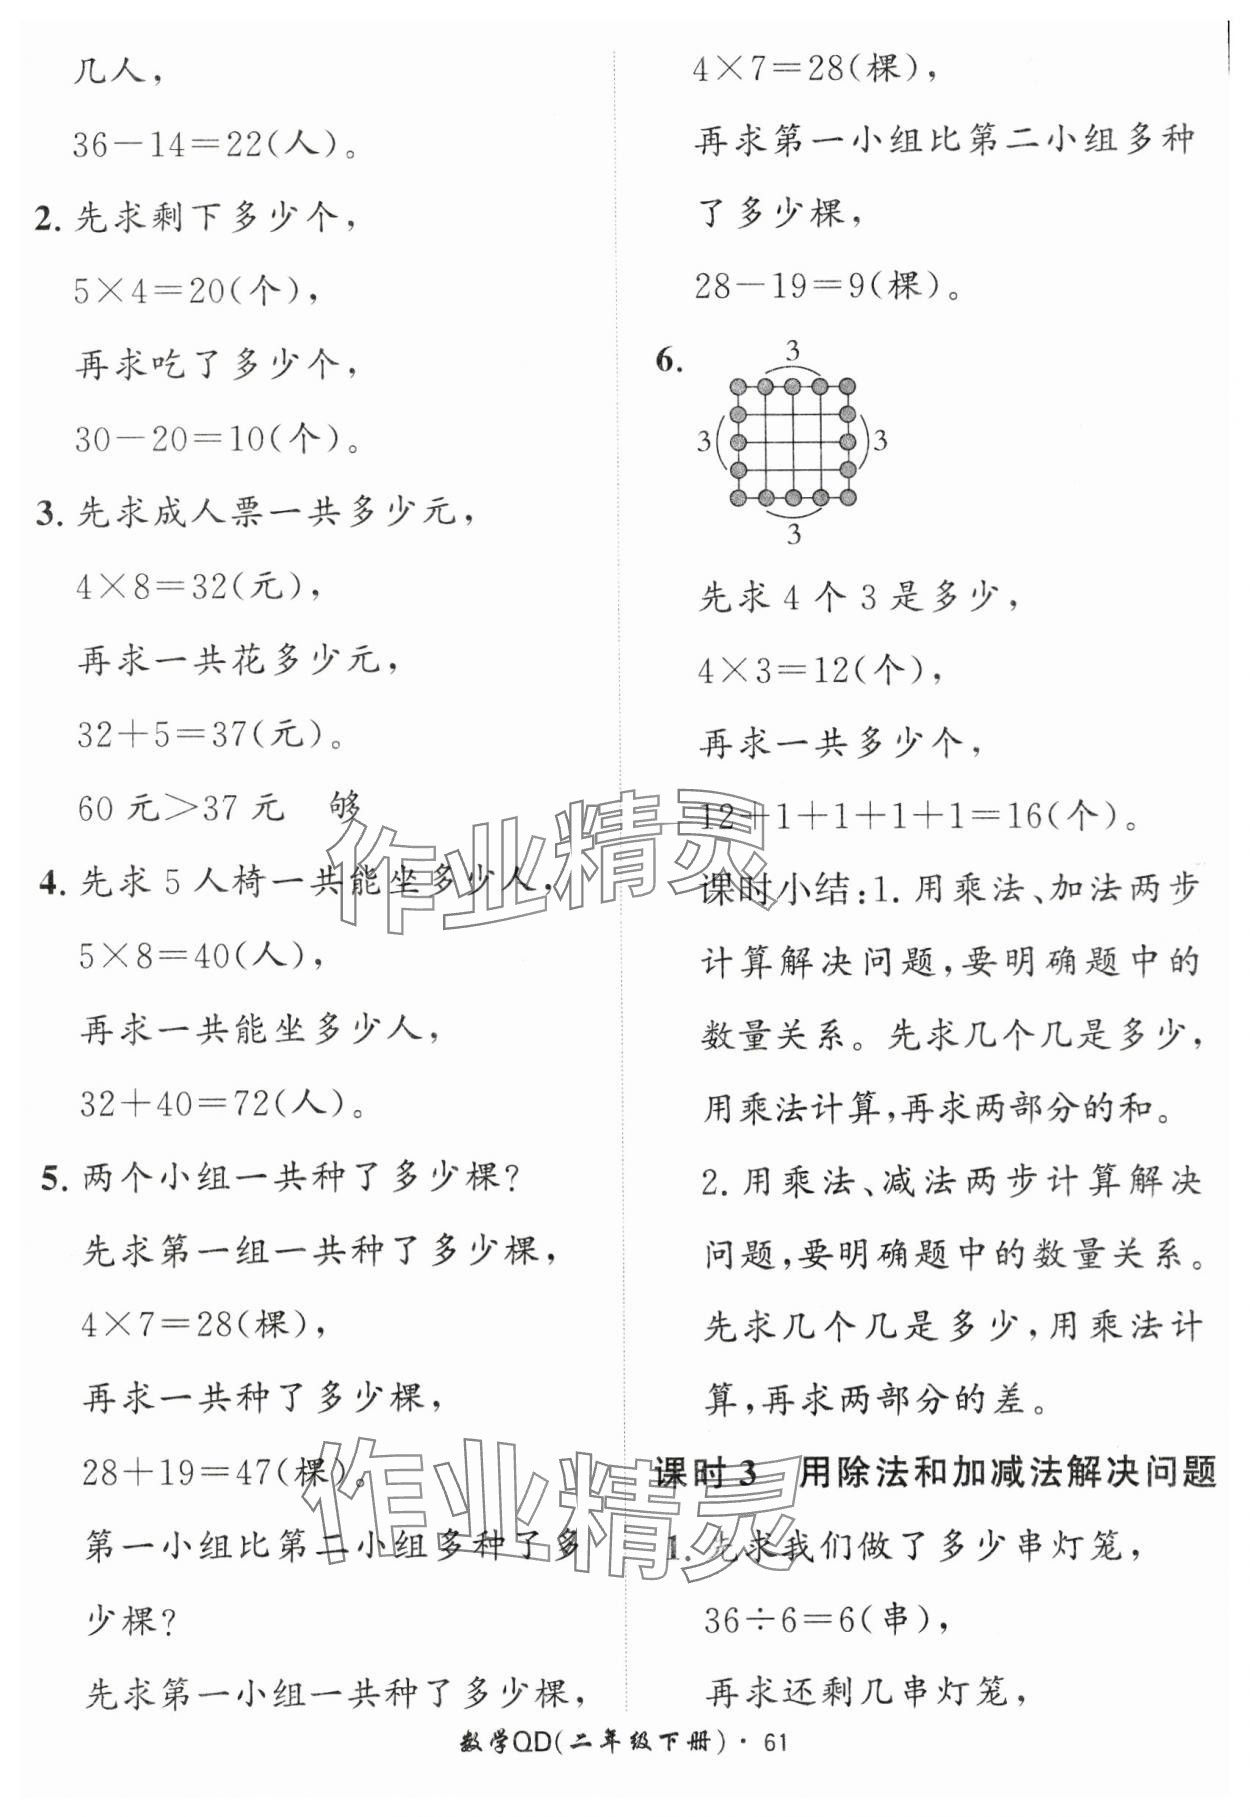 几人，
36－14＝22(人)。
2. 先求剩下多少个，
5×4＝20(个)，
再求吃了多少个，
30－20＝10(个)。
3. 先求成人票一共多少元，
4×8＝32(元)，
再求一共花多少元，
32＋5＝37(元)。
60元＞37元　够
4. 先求5人椅一共能坐多少人，
5×8＝40(人)，
再求一共能坐多少人，
32＋40＝72(人)。
5. 两个小组一共种了多少棵？
先求第一组一共种了多少棵，
4×7＝28(棵)，
再求一共种了多少棵，
28＋19＝47(棵)。
第一小组比第二小组多种了多
少棵？
先求第一小组一共种了多少棵，
4×7＝28(棵)，
再求第一小组比第二小组多种
了多少棵，
28－19＝9(棵)。
6.
3
3
3
3
先求4个3是多少，
4×3＝12(个)，
再求一共多少个，
12＋1＋1＋1＋1＝16(个)。
课时小结：1. 用乘法、加法两步
计算解决问题，要明确题中的
数量关系。先求几个几是多少，
用乘法计算，再求两部分的和。
2. 用乘法、减法两步计算解决
问题，要明确题中的数量关系。
先求几个几是多少，用乘法计
算，再求两部分的差。
课时3　用除法和加减法解决问题
1. 先求我们做了多少串灯笼，
36÷6＝6(串)，
再求还剩几串灯笼，
数学QD(二年级下册)·61
作业精灵
作业精灵